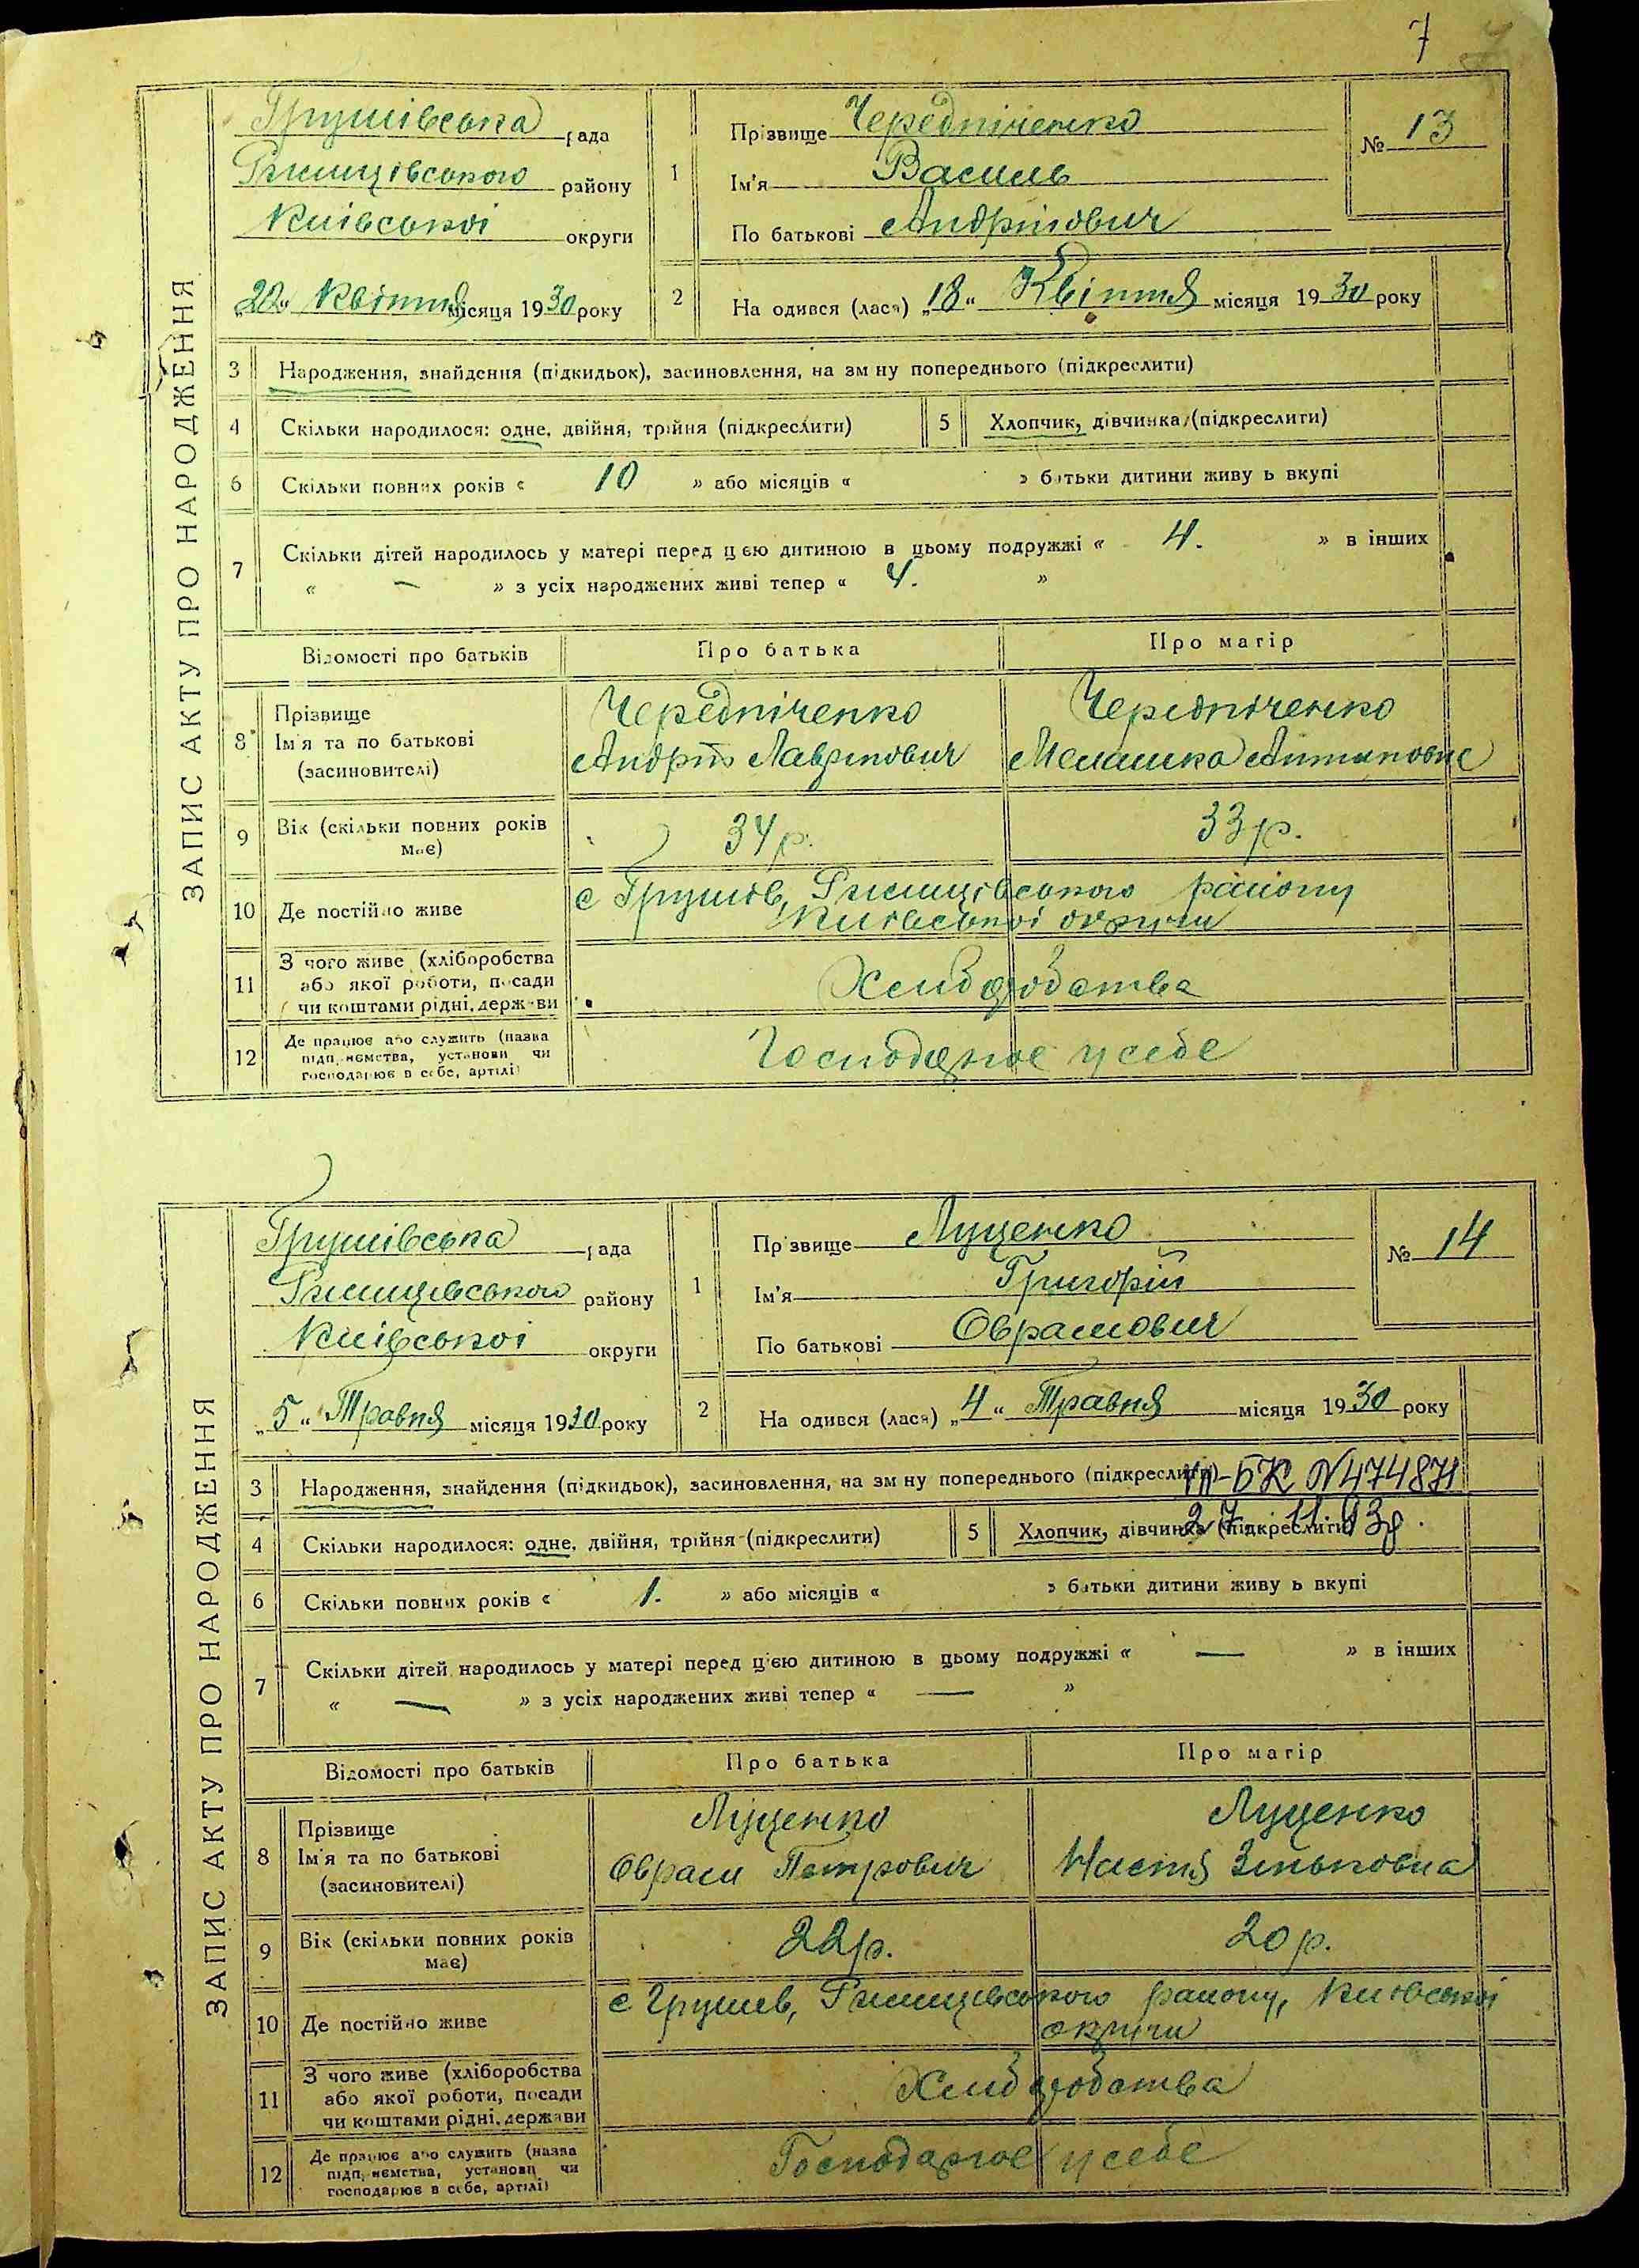 7
ЗАПИС АКТУ ПРО НАРОДЖЕННЯ
Грушівська рада
Ржищівського району
Київської округи
„20“ Квітня місяця 1930 року
1
Прізвище Чередніченко
Ім'я Василь
По батькові Андрійович
№ 13
2
На одився (лася) „18“ Квітня місяця 1930 року
3 Народження, знайдення (підкидьок), засиновлення, на зм ну попереднього (підкреслити)
4 Скільки народилося: одне, двійня, трійня (підкреслити) 5 Хлопчик, дівчинка, (підкреслити)
6 Скільки повних років « 10 » або місяців « » батьки дитини живу ь вкупі
7 Скільки дітей народилось у матері перед цією дитиною в цьому подружжі « 4. » в інших
« — » з усіх народжених живі тепер « 4. »
Відомості про батьків Про батька Про матір
8 Прізвище
Ім'я та по батькові
(засиновителі)
Чередніченко
Андрій Лаврінович
Чередніченко
Мелашка Антиповна
9 Вік (скільки повних років має) 34 р. 33 р.
10 Де постійно живе с Грушів, Ржищівського району
Київської округи
11 З чого живе (хліборобства
або якої роботи, посади
чи коштами рідні, держави
Хліборобства
12 Де працює або служить (назва
підприємства, установи чи
господарює в себе, артілі)
Господарює у себе
ЗАПИС АКТУ ПРО НАРОДЖЕННЯ
Грушівська рада
Ржищівського району
Київської округи
„5“ Травня місяця 1930 року
1
Пр звище Луценко
Ім'я Григорій
По батькові Оврамович
№ 14
2
На одився (лася) „4“ Травня місяця 1930 року
3 Народження, знайдення (підкидьок), засиновлення, на зм ну попереднього (підкреслити)
-БК №474871
4 Скільки народилося: одне, двійня, трійня (підкреслити) 5 Хлопчик, дівчинка (підкреслити)
27. 11. 93р.
6 Скільки повних років « 1. » або місяців « » батьки дитини живу ь вкупі
7 Скільки дітей народилось у матері перед цією дитиною в цьому подружжі « — » в інших
« — » з усіх народжених живі тепер « — »
Відомості про батьків Про батька Про матір
8 Прізвище
Ім'я та по батькові
(засиновителі)
Луценко
Оврам Петрович
Луценко
Настя Зіньковна
9 Вік (скільки повних років має) 22 р. 20 р.
10 Де постійно живе с Грушів, Ржищівського району, Київської
округи
11 З чого живе (хліборобства
або якої роботи, посади
чи коштами рідні, держави
Хліборобства
12 Де працює або служить (назва
підприємства, установи чи
господарює в себе, артілі)
Господарює у себе